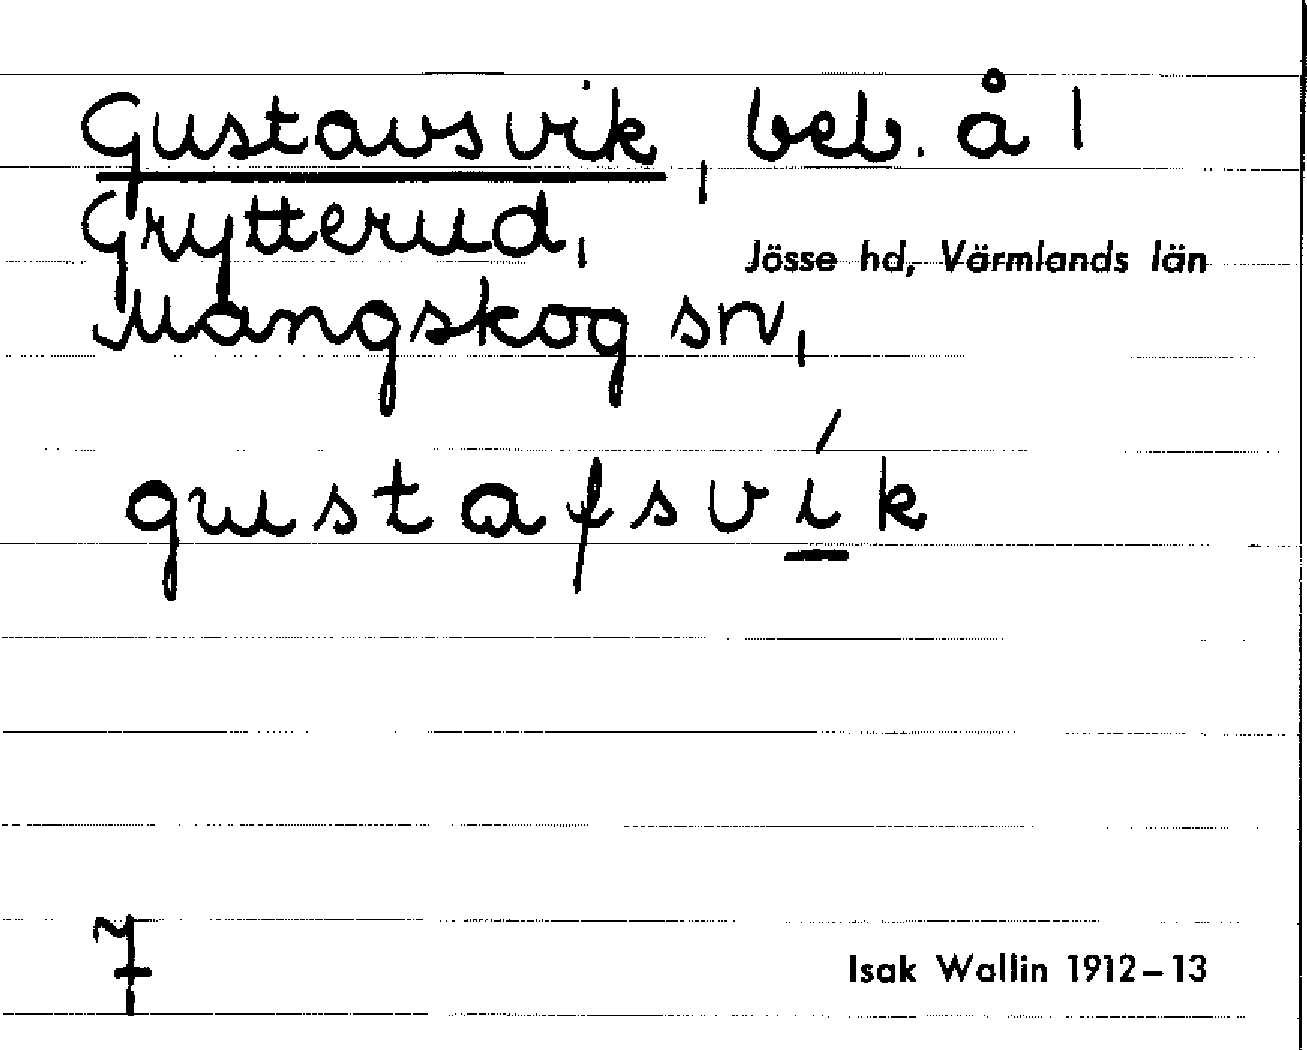 Gustavsvik, beb. å 1
Grytterud,
Jösse hd, Värmlands län
Mangskog sn,
gustafsvík
7
Isak Wallin 1912–13